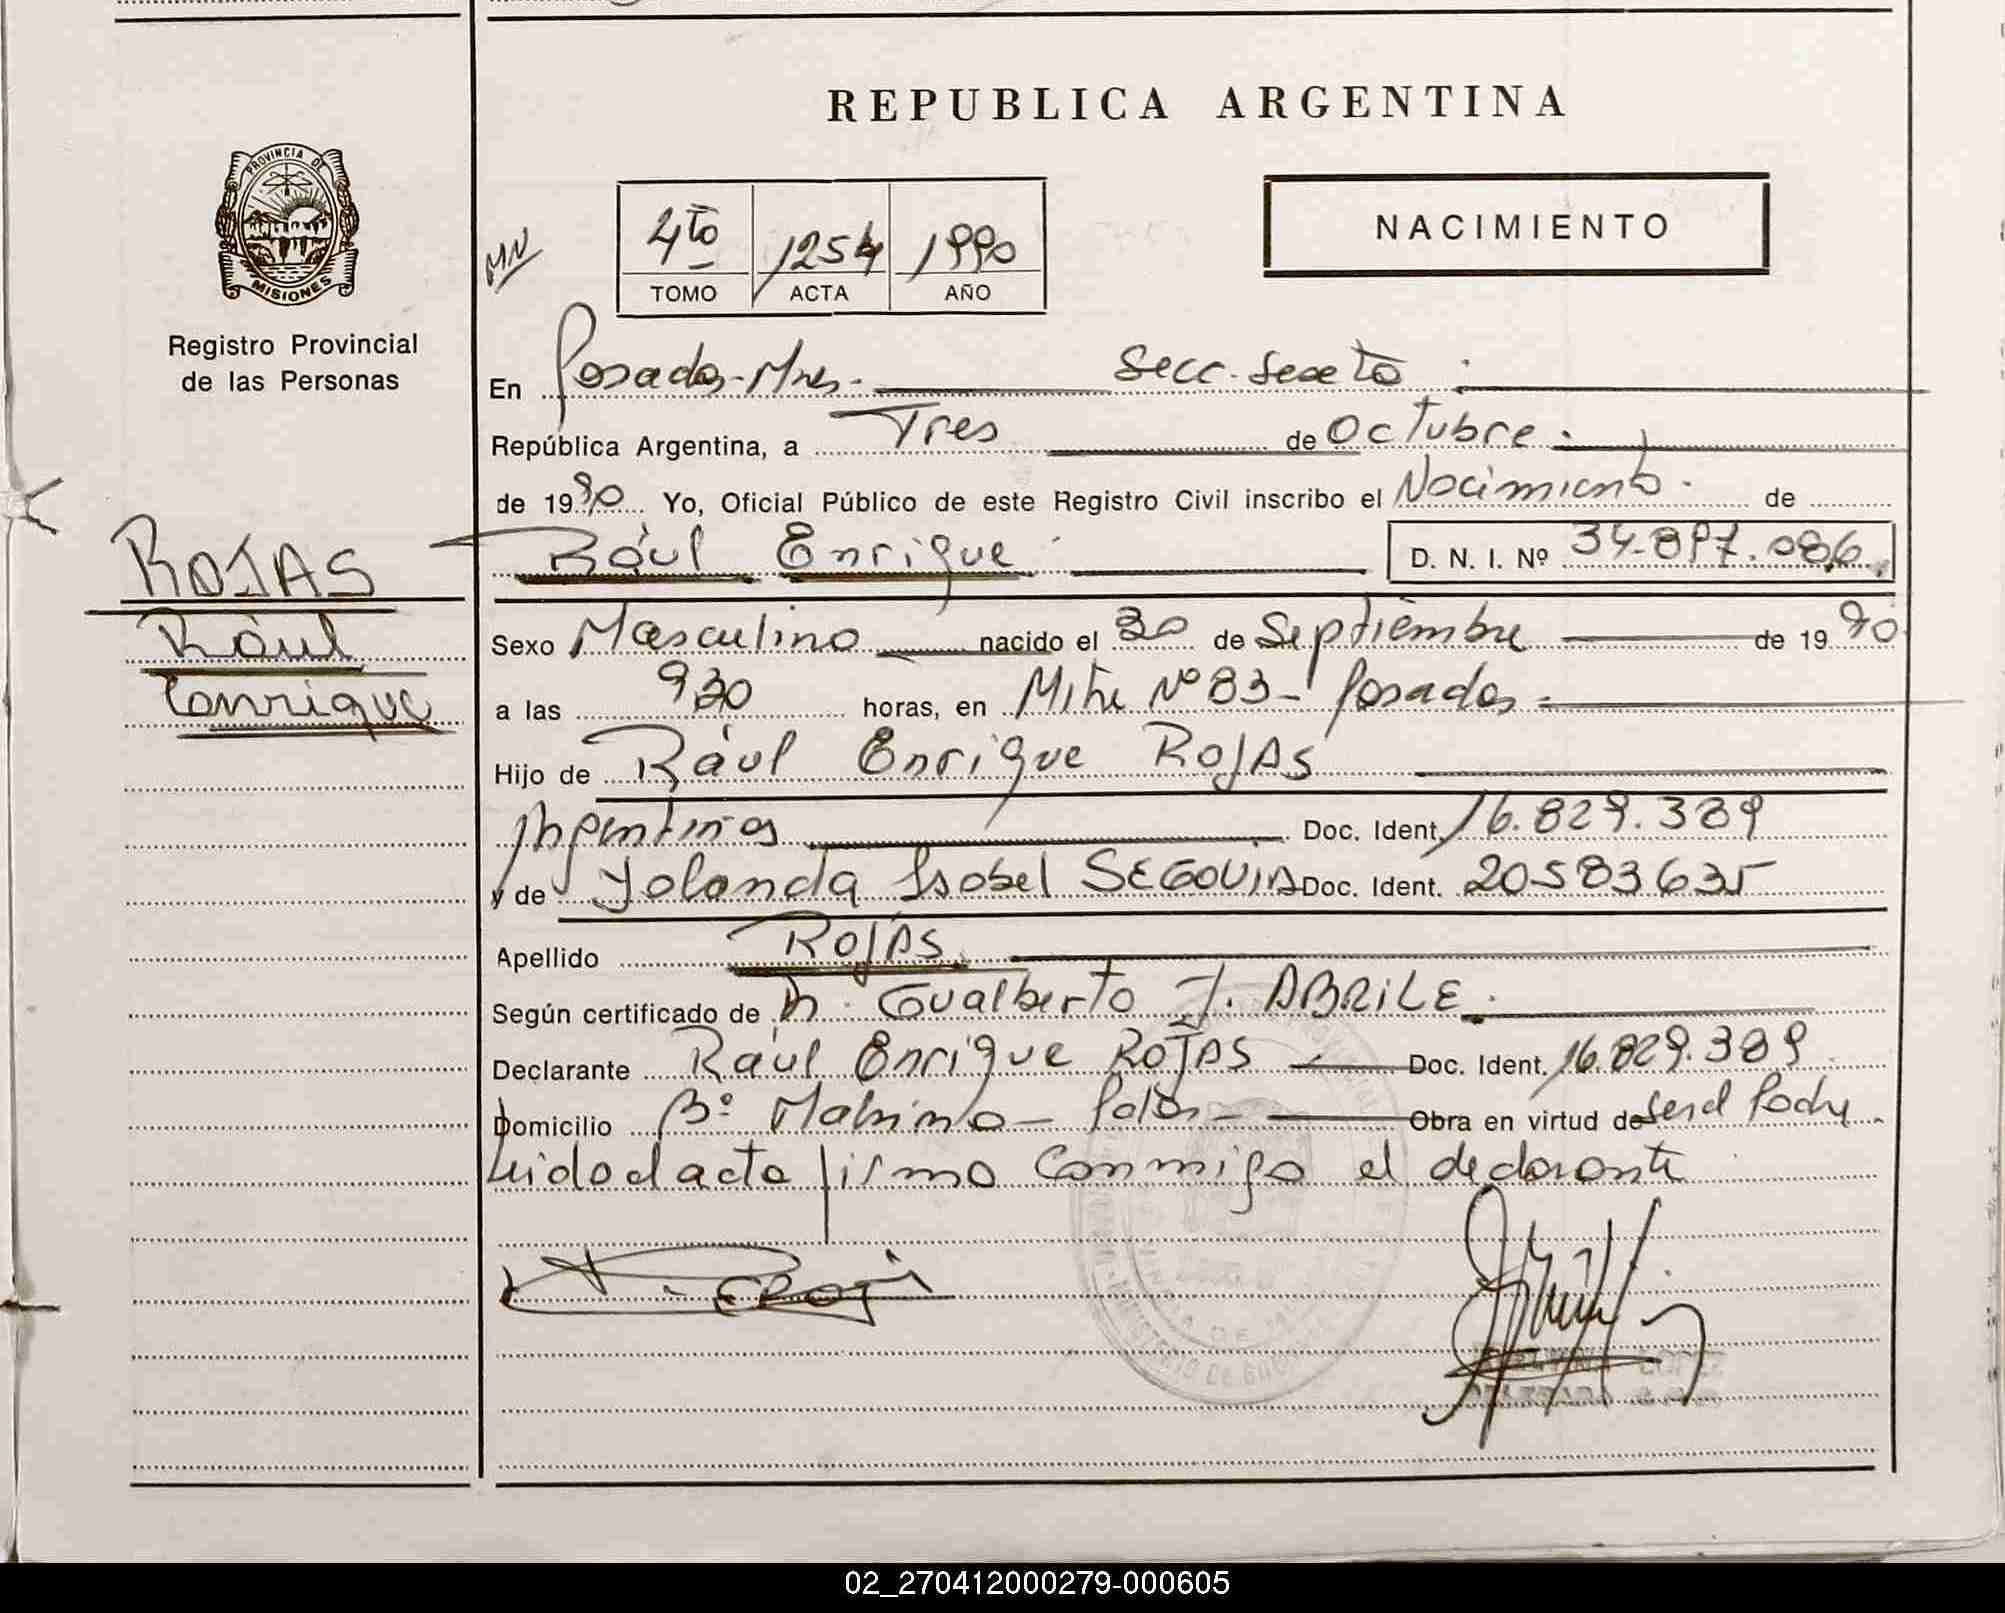 REPUBLICA ARGENTINA
PROVINCIA DE
MISIONES
Registro Provincial
de las Personas
NACIMIENTO
4to 1254 1990
TOMO ACTA AÑO
En Posadas-Mnes- Secc. Sexta
República Argentina, a Tres de Octubre
de 1990 Yo, Oficial Público de este Registro Civil inscribo el Nacimiento de
ROJAS
Raúl
Enrique
Raúl Enrique D. N. I. Nº 34.897.086
Sexo Masculino nacido el 30 de Septiembre de 1990
a las 930 horas, en Mitre Nº 83- Posadas
Hijo de Raúl Enrique ROJAS
Argentinos Doc. Ident. 16.829.389
y de Yolanda Isabel SEGOVIA Doc. Ident. 20583635
Apellido ROJAS
Según certificado de Dr. Gualberto J. ABRILE
Declarante Raúl Enrique ROJAS Doc. Ident. 16.829.389
Domicilio Bº Obra en virtud de Ser el Padre
Leido el acta firma conmigo el declarante
02_270412000279-000605